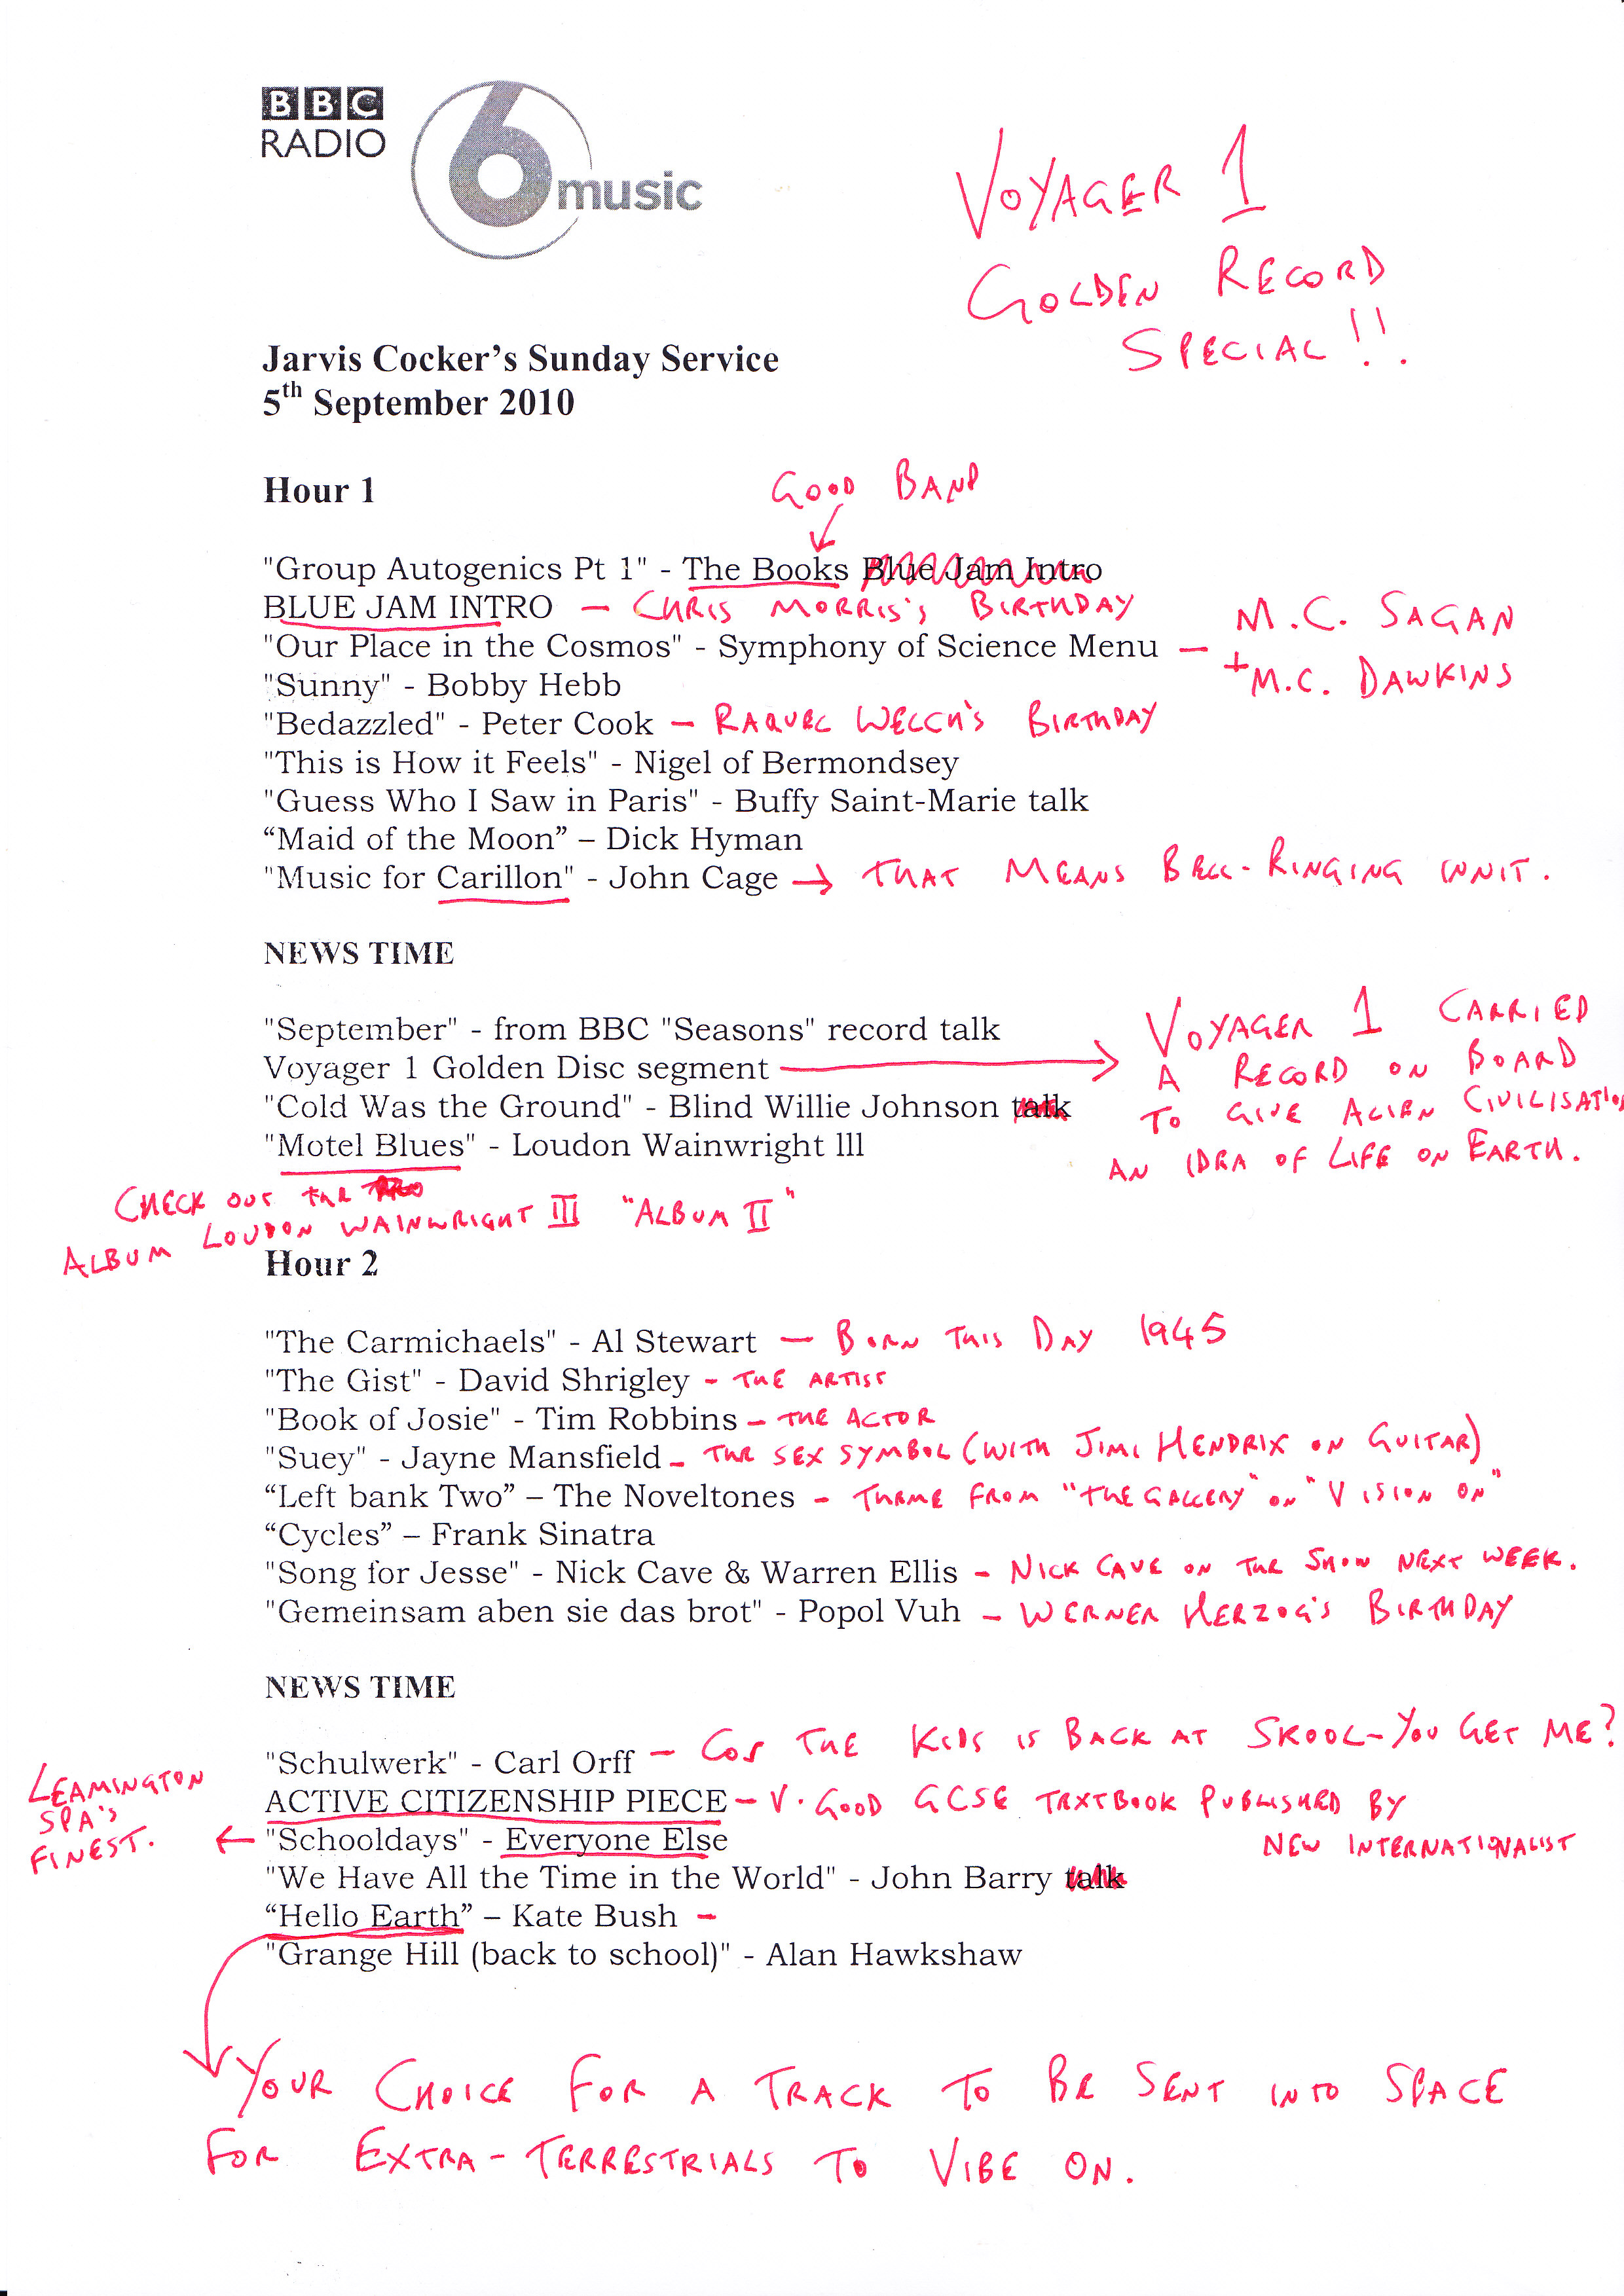 BBC
RADIO
6 music
VOYAGER 1
GOLDEN RECORD
SPECIAL!!.
Jarvis Cocker's Sunday Service
5th September 2010
Hour 1
GOOD BAND
"Group Autogenics Pt 1" - The Books Blue Jam Intro
BLUE JAM INTRO – CHRIS MORRIS'S BIRTHDAY
"Our Place in the Cosmos" - Symphony of Science Menu – M.C. SAGAN
+ M.C. DAWKINS
"Sunny" - Bobby Hebb
"Bedazzled" - Peter Cook – RAQUEL WELCH'S BIRTHDAY
"This is How it Feels" - Nigel of Bermondsey
"Guess Who I Saw in Paris" - Buffy Saint-Marie talk
“Maid of the Moon” – Dick Hyman
"Music for Carillon" - John Cage → THAT MEANS BELL-RINGING INNIT.
NEWS TIME
"September" - from BBC "Seasons" record talk
Voyager 1 Golden Disc segment
"Cold Was the Ground" - Blind Willie Johnson talk
"Motel Blues" - Loudon Wainwright lll
VOYAGER 1 CARRIED
A RECORD ON BOARD
TO GIVE ALIEN CIVILISATION
AN IDEA OF LIFE ON EARTH.
CHECK OUT THE
ALBUM LOUDON WAINWRIGHT III "ALBUM II"
Hour 2
"The Carmichaels" - Al Stewart – BORN THIS DAY 1945
"The Gist" - David Shrigley - THE ARTIST
"Book of Josie" - Tim Robbins – THE ACTOR
"Suey" - Jayne Mansfield – THE SEX SYMBOL (WITH JIMI HENDRIX ON GUITAR)
“Left bank Two” – The Noveltones - THEME FROM "THE GALLERY" ON "VISION ON"
“Cycles” – Frank Sinatra
"Song for Jesse" - Nick Cave & Warren Ellis - NICK CAVE ON THE SHOW NEXT WEEK.
"Gemeinsam aben sie das brot" - Popol Vuh – WERNER HERZOG'S BIRTHDAY
NEWS TIME
"Schulwerk" - Carl Orff – COS THE KIDS IS BACK AT SKOOL-YOU GET ME?
ACTIVE CITIZENSHIP PIECE – V. GOOD GCSE TEXTBOOK PUBLISHED BY
NEW INTERNATIONALIST
LEAMINGTON
SPA'S
FINEST.
"Schooldays" - Everyone Else
"We Have All the Time in the World" - John Barry talk
“Hello Earth” – Kate Bush –
"Grange Hill (back to school)" - Alan Hawkshaw
YOUR CHOICE FOR A TRACK TO BE SENT INTO SPACE
FOR EXTRA-TERRESTRIALS TO VIBE ON.